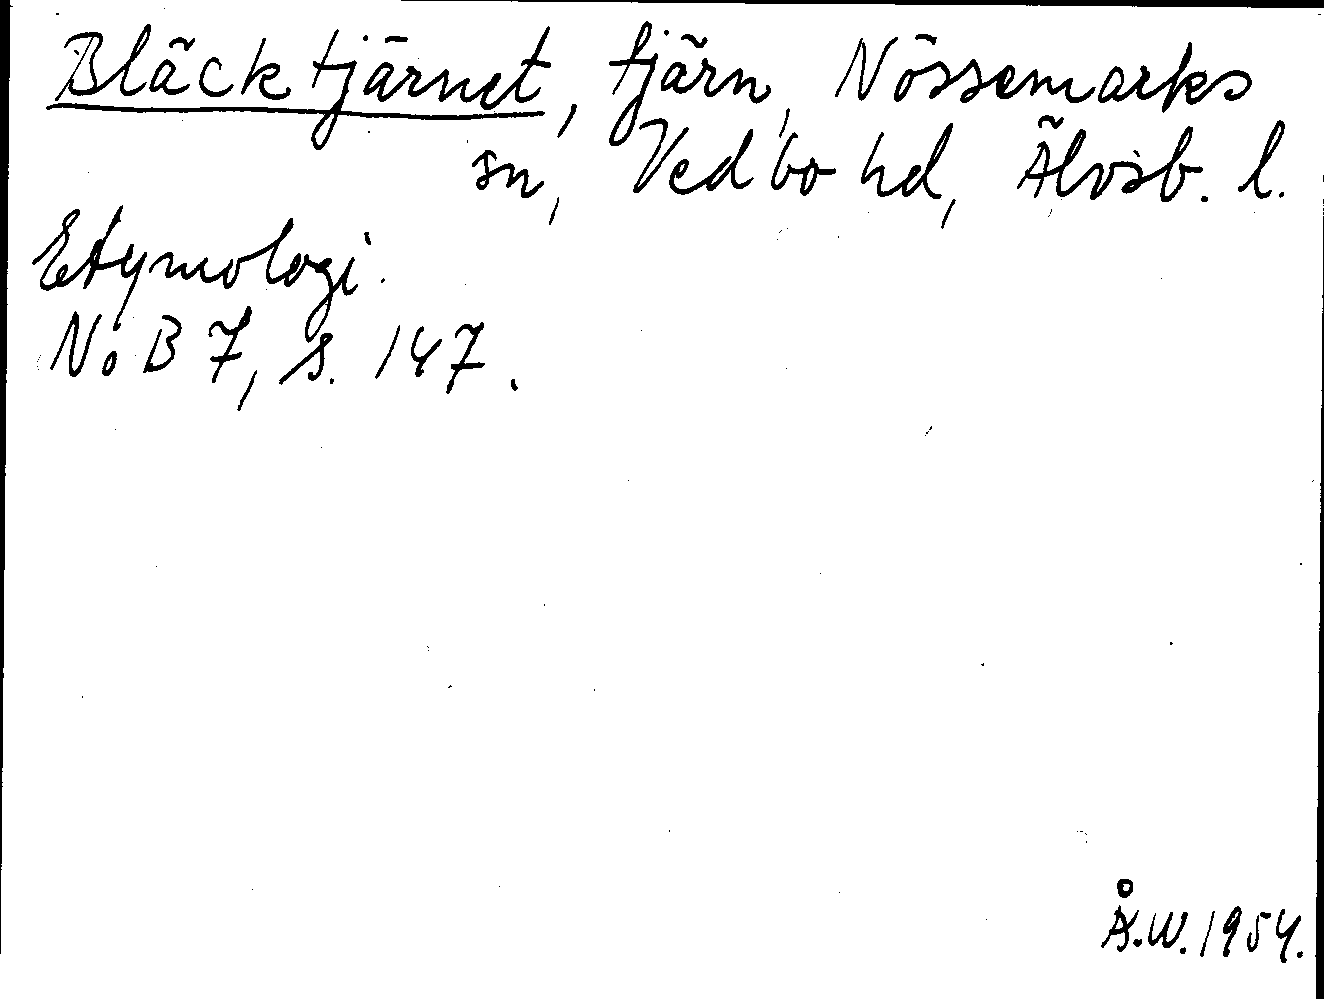 Bläcktjärnet, tjärn, Nössemarks
sn, Vedbo hd, Älvsb. l.
Etymologi.
NoB 7, s. 147.
Å.W. 1954.